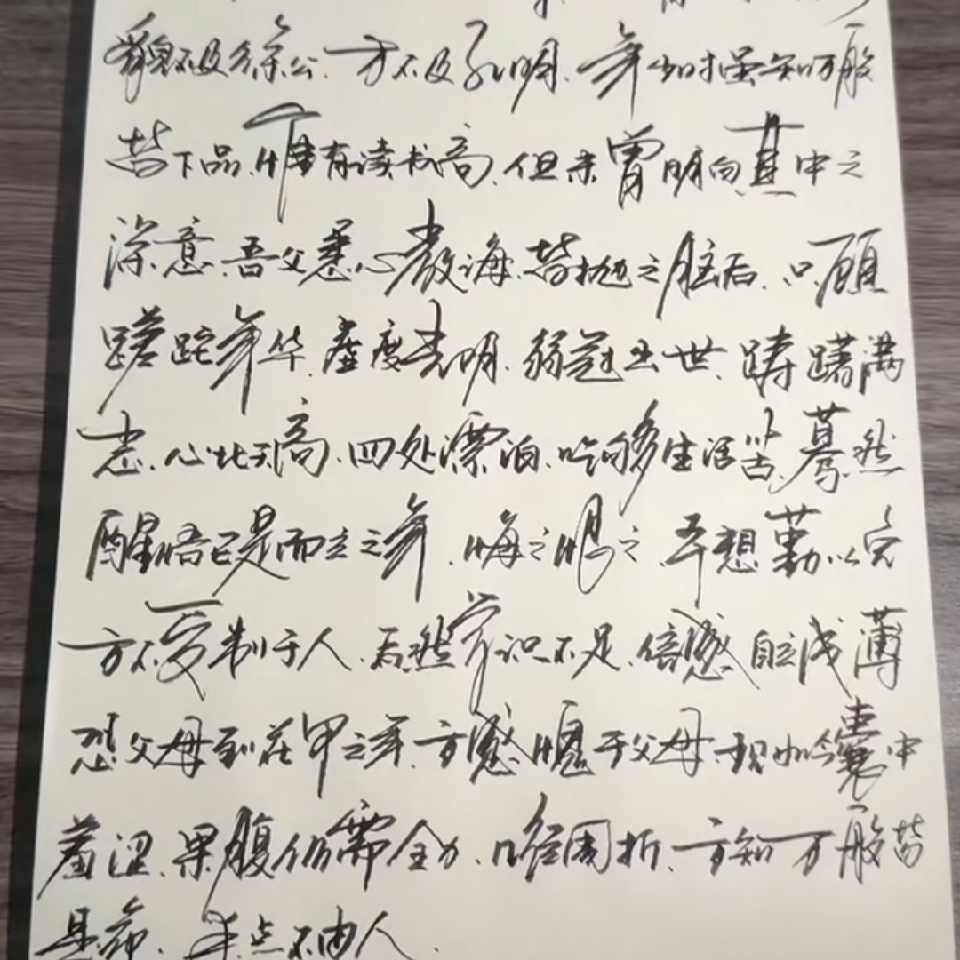 貌不及徐公、才不及孔明、年少时虽知万般
皆下品、惟有读书高、但未曾明白其中之
深意、吾父悉心教诲、皆抛之脑后、只顾
蹉跎年华、虚度光明、弱冠出世、踌躇满
志、心比天高、四处漂泊、吃够生活苦、蓦然
醒悟已是而立之年、悔之恨之、年想勤以完
方不受制于人、若然学识不足、倍感自己浅薄
恐父母到花甲之年、方感愧于父母、现如今囊中
羞涩、果腹仍需全力、几经周折、方知万般皆
是命、半点不由人、